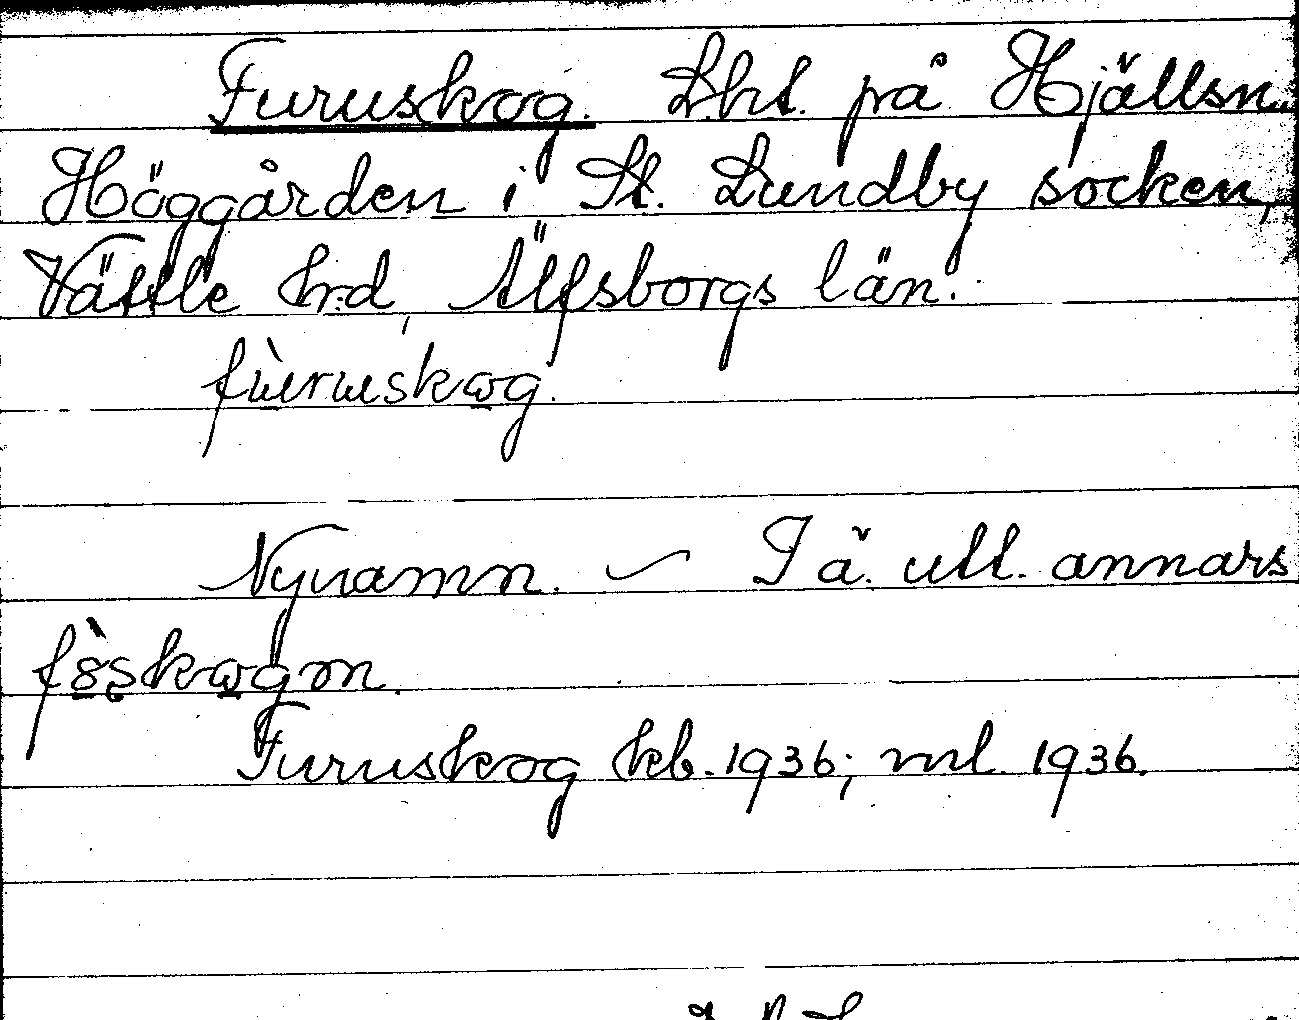 Furuskog. Lht. på Hjällsn.
Höggården i St. Lundby socken,
Vättle hrd, Älfsborgs län.
fùruskog.
Nynamn. — I ä. utt. annars
fòskogen.
Furuskog kb. 1936; ml. 1936.